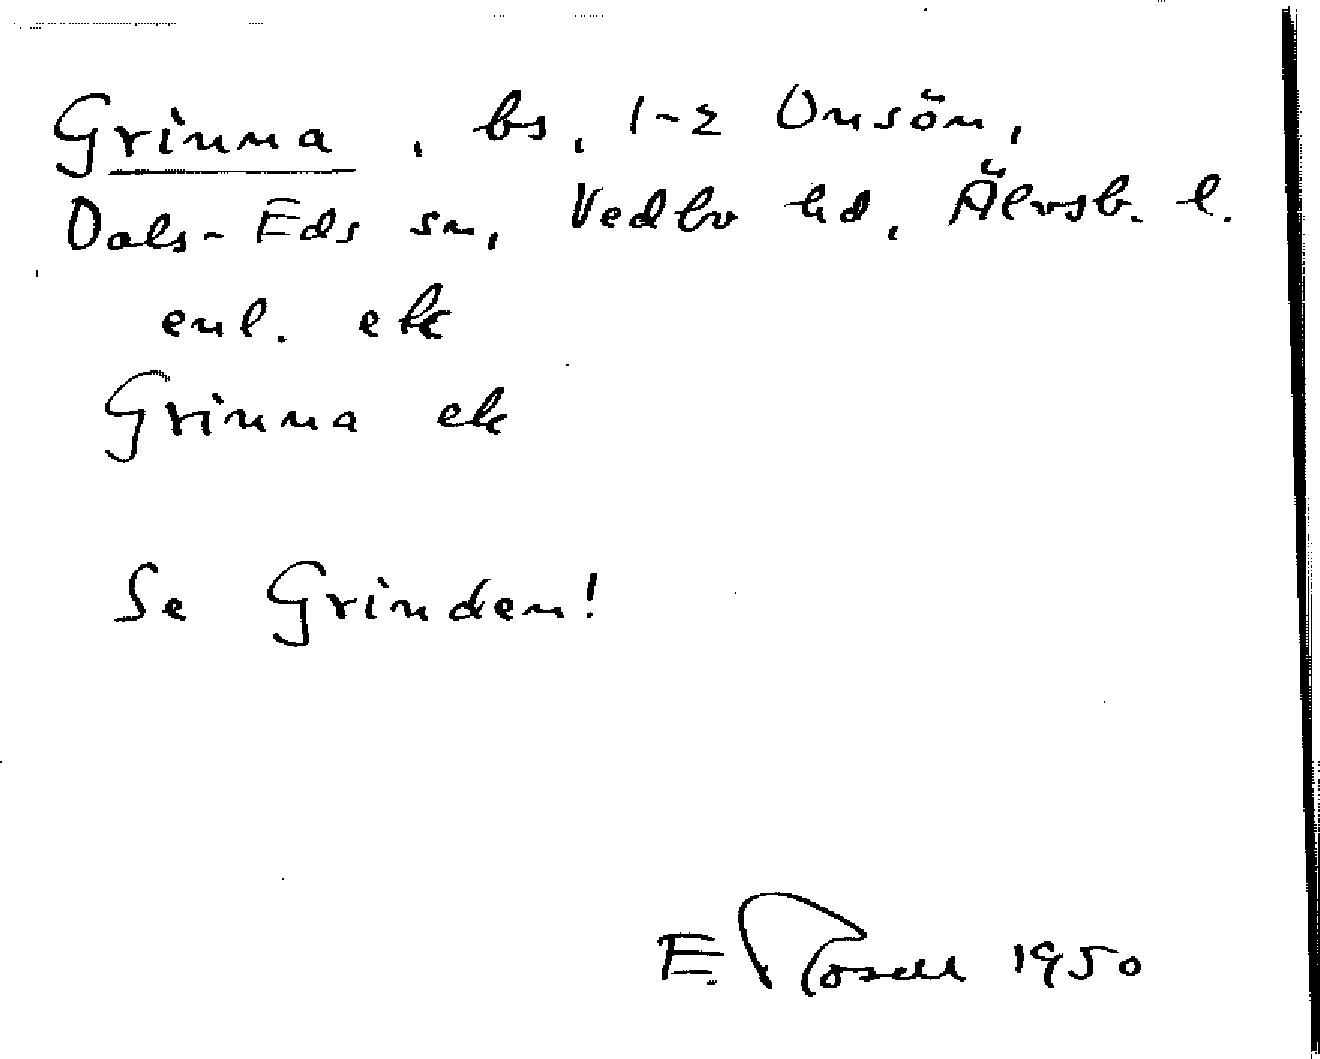 Grinna, bs, 1-2 Onsön,
Dals-Eds sn, Vedbo hd, Älvsb. l.
enl. ek
Grinna ek
Se Grinden!
E. Rosell 1950